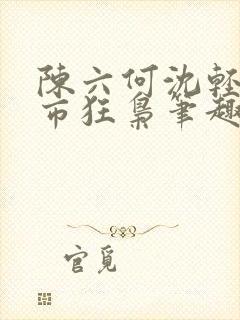 陳六何沈輕
市狂梟筆趣
官覓